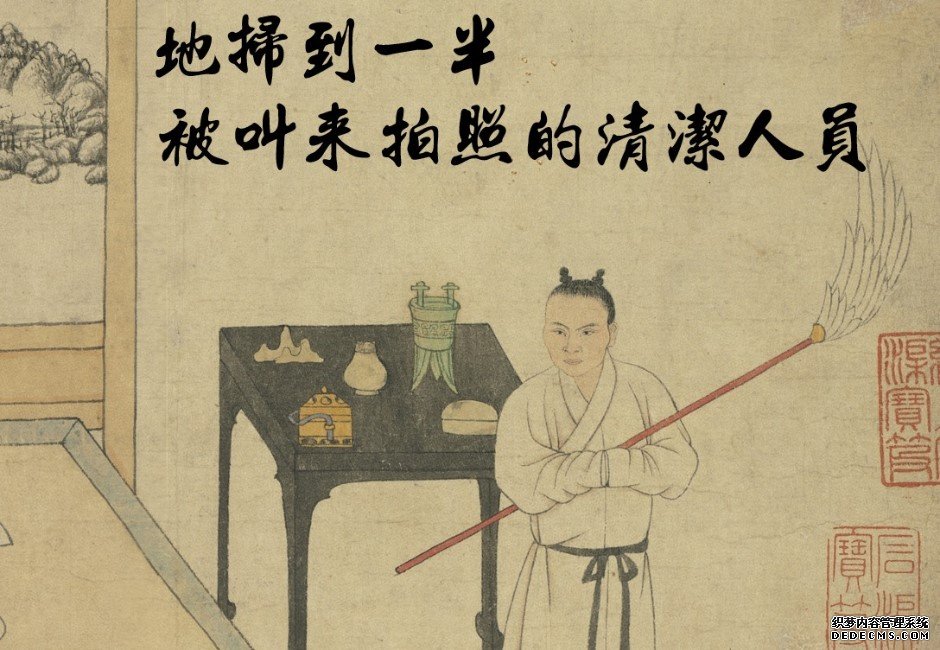 地掃到一半
被叫来拍照的清潔人員
寶
寶
织梦内容管理系统
DEDECMS.COM